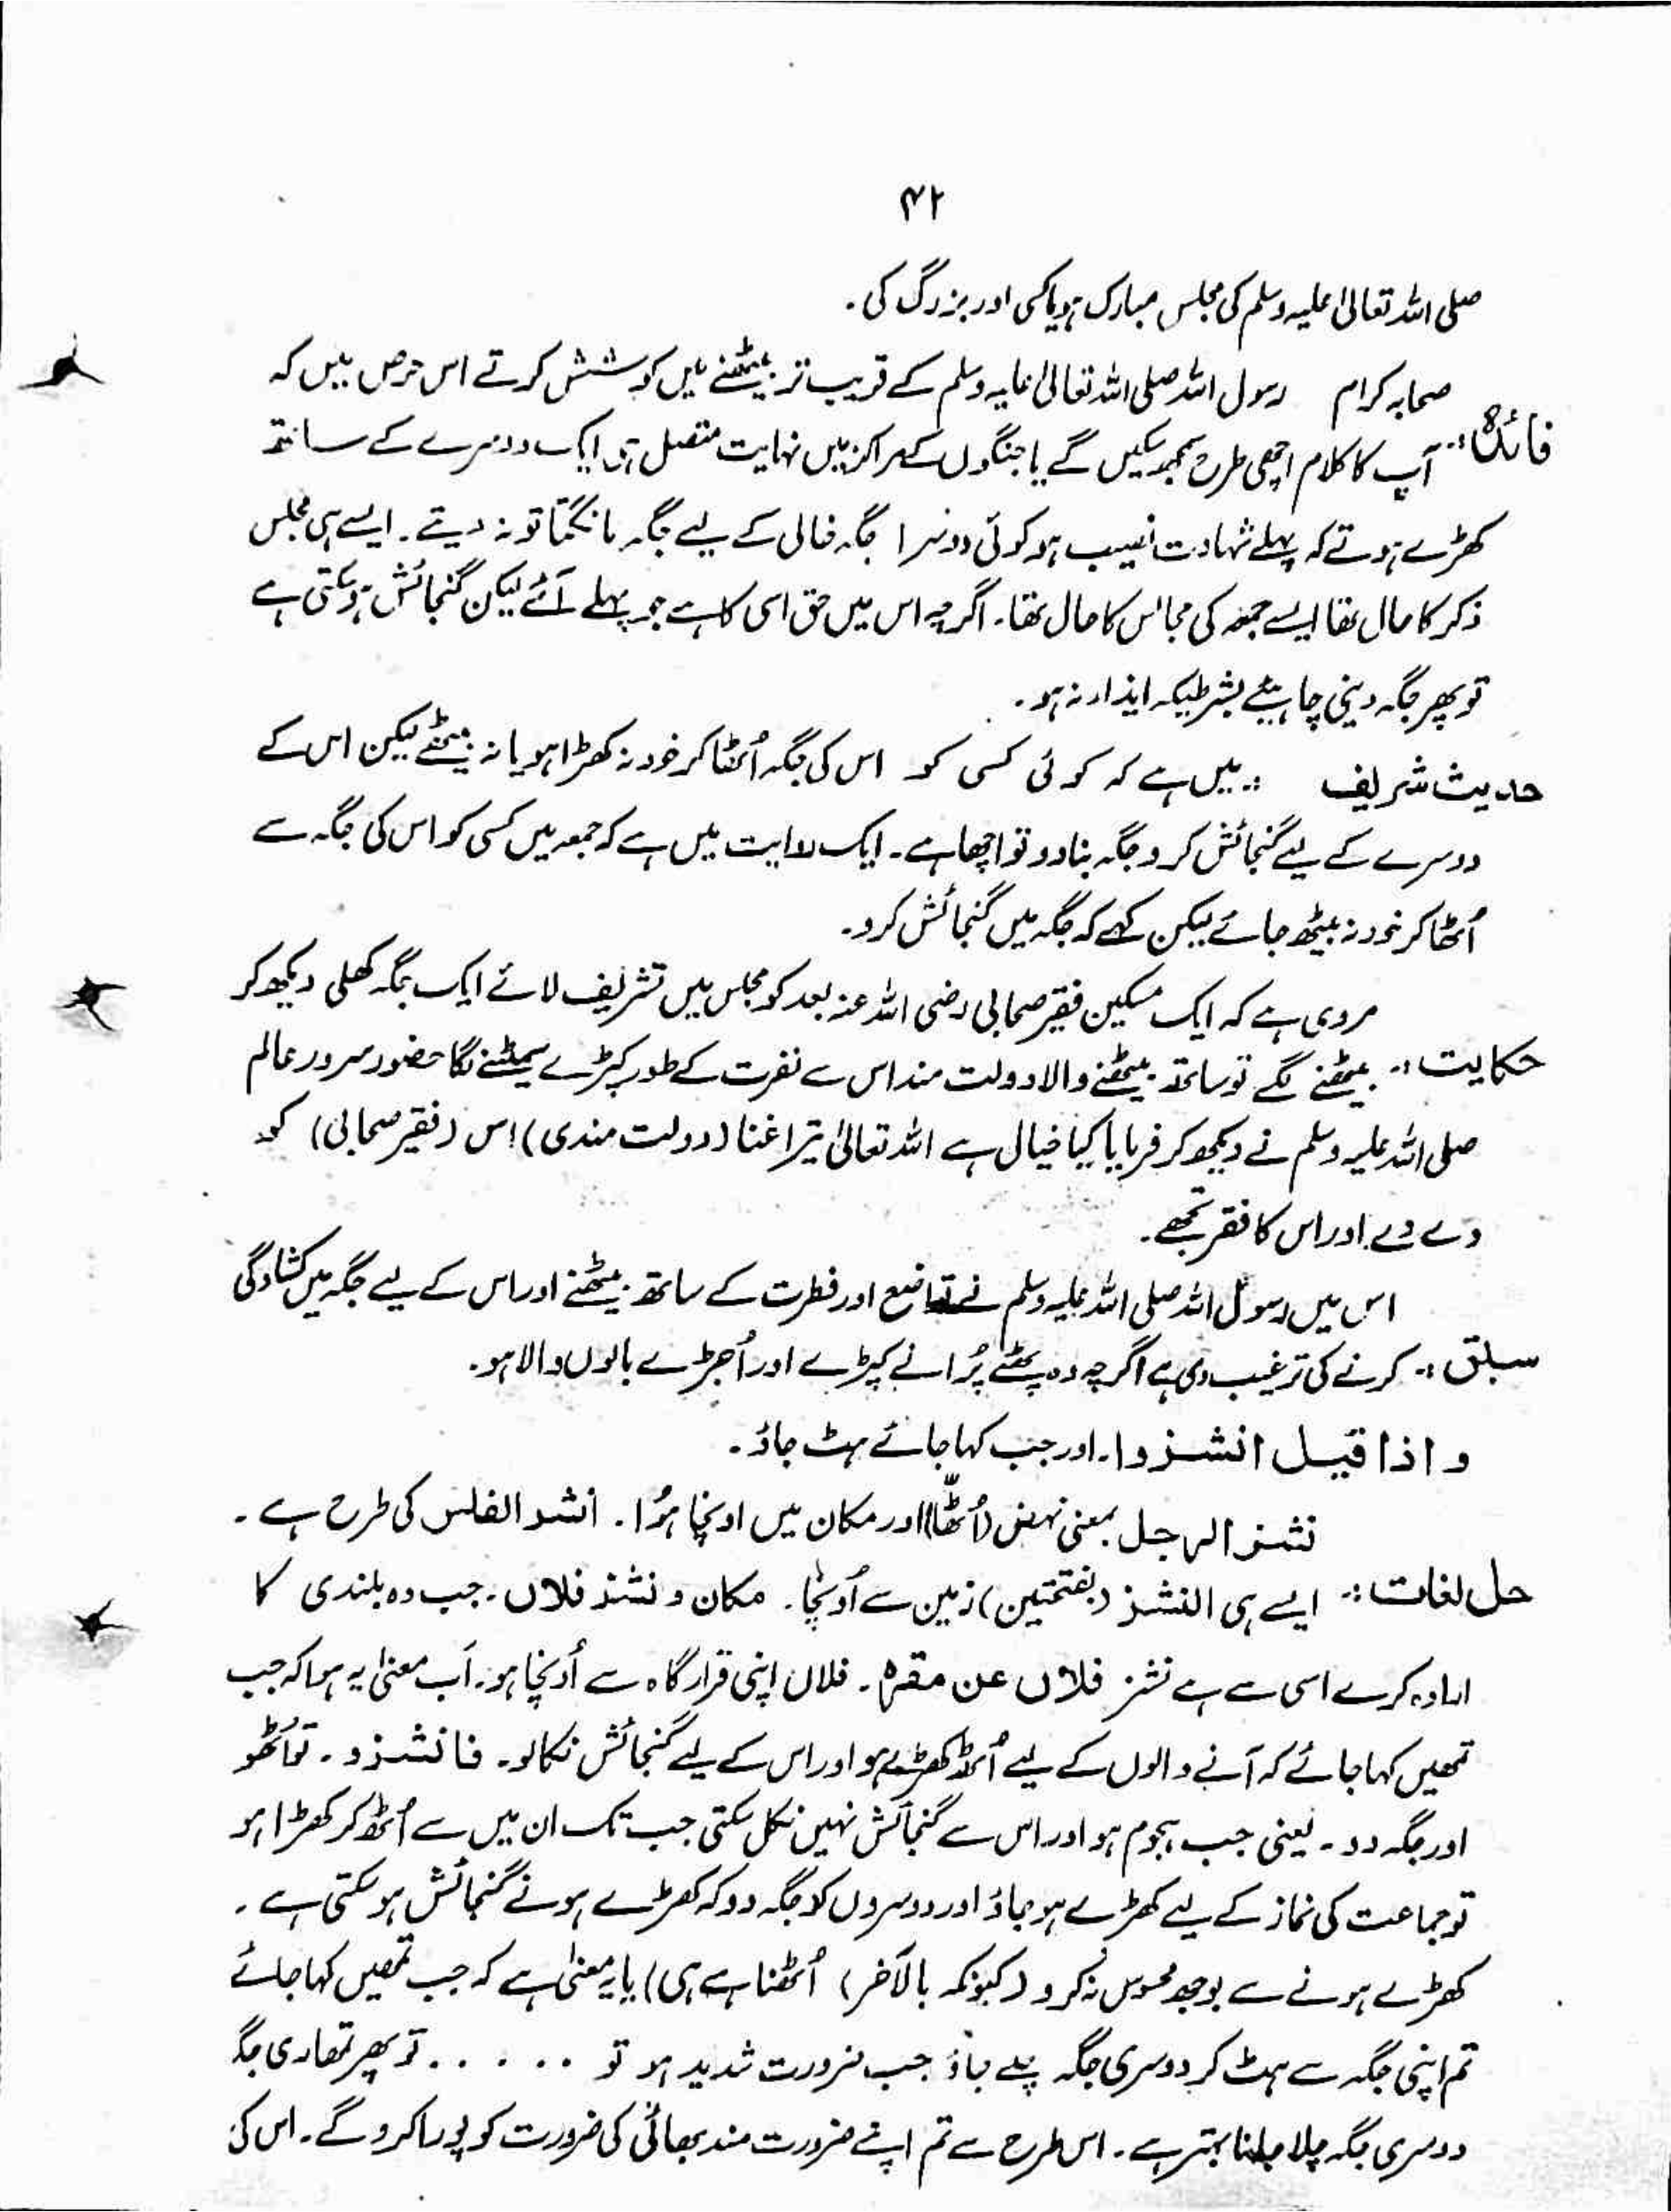 ۴۲
صلی اللہ تعالیٰ علیہ وسلم کی مجلس مبارک ہو یا کسی اور بزرگ کی۔
صحابہ کرام رسول اللہ صلی اللہ تعالیٰ علیہ وسلم کے قریب تر بیٹھنے میں کوشش کرتے اس حرص میں کہ
فائدہ:۔ آپ کا کلام اچھی طرح سمجھ سکیں گے یا جنگوں کے مراکز میں نہایت متصل ہی ایک دوسرے کے ساتھ
کھڑے ہوتے کہ پہلے شہادت نصیب ہو کوئی دوسرا جگہ خالی کے لیے جگہ مانگتا تو نہ دیتے۔ ایسے ہی مجلس
ذکر کا حال تھا ایسے جمعہ کی مجالس کا حال تھا۔ اگرچہ اس میں حق اسی کا ہے جو پہلے آئے لیکن گنجائش ہو سکتی ہے
تو پھر جگہ دینی چاہیئے بشرطیکہ ایذاء نہ ہو۔
حدیث شریف :۔ میں ہے کہ کوئی کسی کو اس کی جگہ اُٹھا کر خود نہ کھڑا ہو یا نہ بیٹھے لیکن اس کے
دوسرے کے لیے گنجائش کر و جگہ بنا دو تو اچھا ہے۔ ایک روایت میں ہے کہ جمعہ میں کسی کو اس کی جگہ سے
اُٹھا کر خود نہ بیٹھ جائے لیکن کہے کہ جگہ میں گنجائش کرو۔
مروی ہے کہ ایک مسکین فقیر صحابی رضی اللہ عنہ بعد کو مجلس میں تشریف لائے ایک جگہ کھلی دیکھ کر
حکایت:۔ بیٹھنے لگے تو ساتھ بیٹھنے والا دولت مند اس سے نفرت کے طور کپڑے سمیٹنے لگا حضور سرور عالم
صلی اللہ علیہ وسلم نے دیکھ کر فرمایا کیا خیال ہے اللہ تعالیٰ تیرا غنا (دولت مندی) اس (فقیر صحابی) کو
دے دے اور اس کا فقر تجھے۔
اس میں رسول اللہ صلی اللہ علیہ وسلم نے تواضع اور فطرت کے ساتھ بیٹھنے اور اس کے لیے جگہ میں کشادگی
سبق:۔ کرنے کی ترغیب دی ہے اگرچہ وہ پھٹے پُرانے کپڑے اور اُجڑے بالوں والا ہو۔
و اذا قیل انشزوا۔ اور جب کہا جائے ہٹ جاؤ۔
نشز الرجل بمعنی نہض (اُٹھا) اور مکان میں اونچا ہُوا۔ انشد الفلس کی طرح ہے۔
حل لغات:۔ ایسے ہی النشز (بفتحتین) زمین سے اُونچا۔ مکان و نشز فلاں۔ جب وہ بلندی کا
ارادہ کرے اسی سے ہے نشز فلاں عن مقرہ۔ فلاں اپنی قرار گاہ سے اُونچا ہو۔ اَب معنیٰ یہ ہوا کہ جب
تمھیں کہا جائے کہ آنے والوں کے لیے اُٹھ کھڑے ہو اور اس کے لیے گنجائش نکالو۔ فانشزو۔ تو اُٹھو
اور جگہ دو۔ یعنی جب ہجوم ہو اور اس سے گنجائش نہیں نکل سکتی جب تک ان میں سے اُٹھ کر کھڑا ہو
تو جماعت کی نماز کے لیے کھڑے ہو جاؤ اور دوسروں کو جگہ دو کہ کھڑے ہونے گنجائش ہو سکتی ہے۔
کھڑے ہونے سے بوجھ محسوس نہ کرو (کیونکہ بالآخر) اُٹھنا ہے ہی) یا یہ معنیٰ ہے کہ جب تمھیں کہا جائے
تم اپنی جگہ سے ہٹ کر دوسری جگہ چلے جاؤ جب ضرورت شدید ہو تو ..... تو پھر تمھاری جگہ
دوسری جگہ چلا جانا بہتر ہے۔ اس طرح سے تم اپنے ضرورت مند بھائی کی ضرورت کو پورا کرو گے۔ اس کی